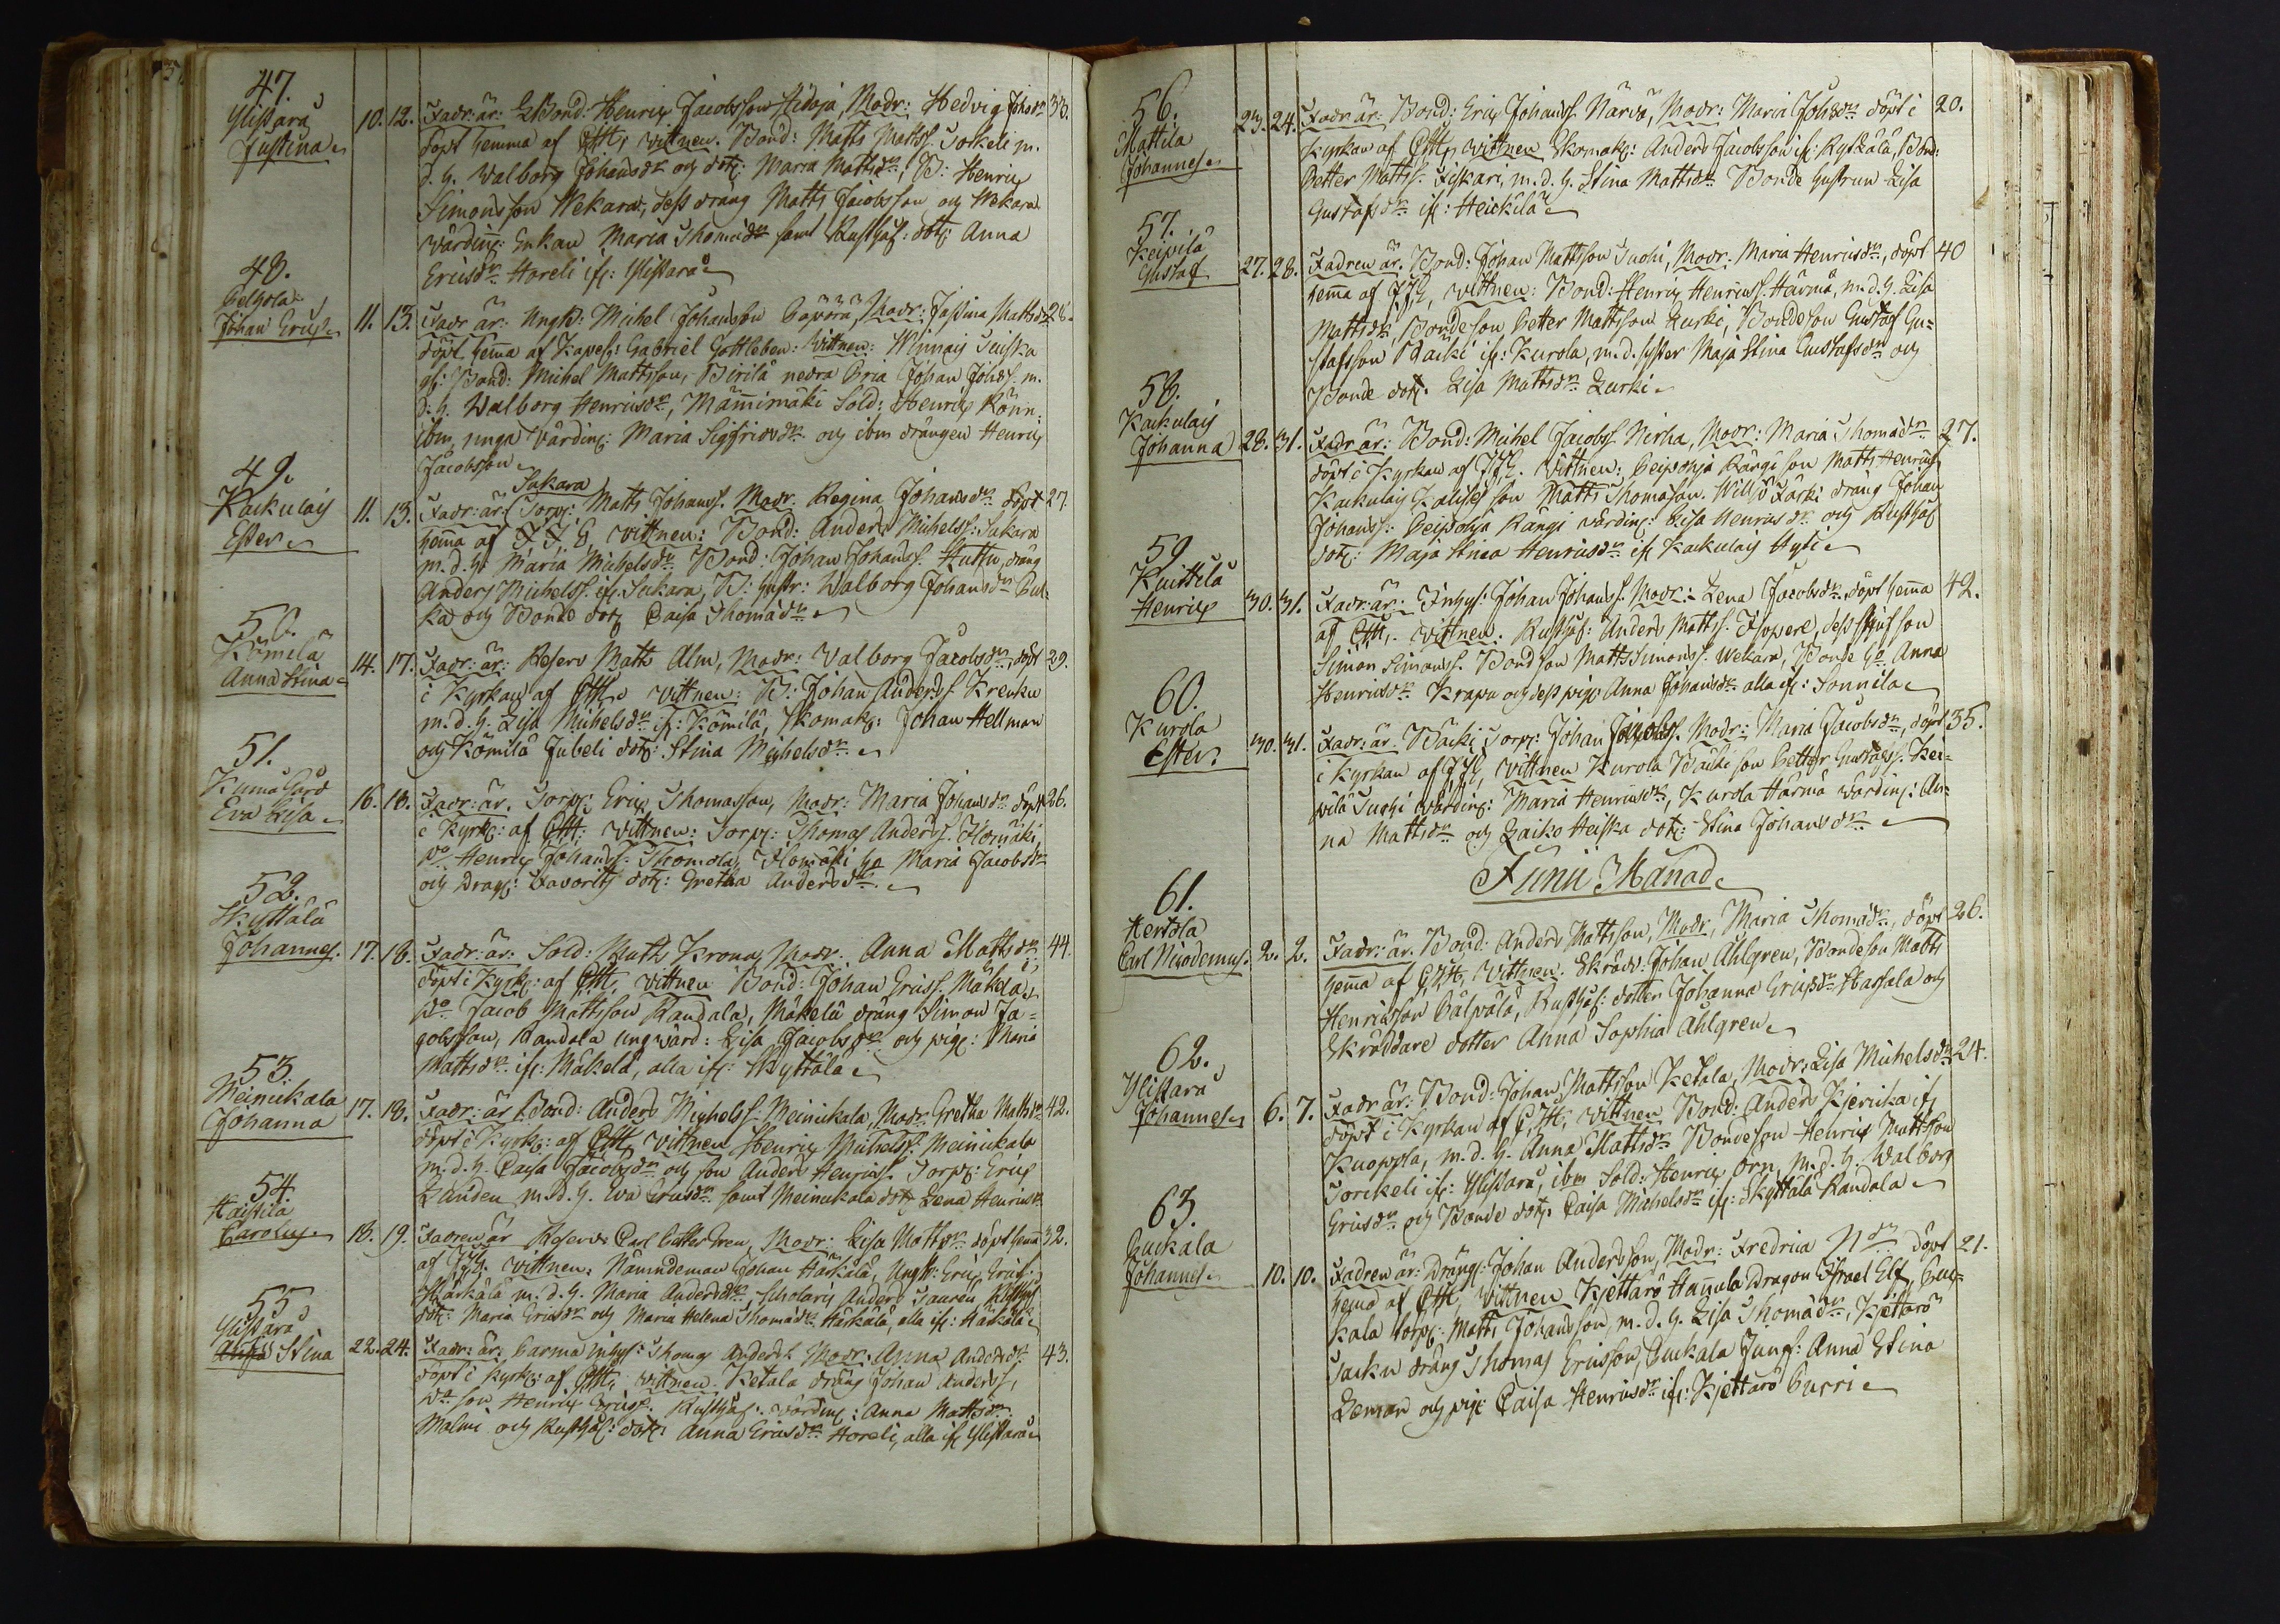 47.
Ylistaro
Justina
10. 12. Fadr: är: Bond: Henrix Jacobsson Hidoja, Modr: Hedvig Johsdr 33.
döpt hemma af CHt, vittnen. Bond: Matts Mattss. Torkeli m.
d. h. Walborg Johansdr och dotr: Maria Mattsdr, B: Henrix
Simonsson Wekara, dess dräng Matts Jacobsson och Wekara
Enkan Maria Thomædr samt Rusthål: dotr: Anna
Ericsdr Horeli ifr: Ylistaro
48.
Pelhola
Johan Erix
11. 13. Fadr är: Ungkl: Michel Johansson Modr: Justina Mattsdr 28.
döpt hema af Gabriel Gottleben: Vittnen:
Bond: Michel Mattsson, Pirilä nedra Johan Johss. m.
d. h. Walborg Henricsdr, Mämimäki Sold: Henrix Rönn.
ibm, unga Maria Sigfridsdr och ibm drängen Henrix
Jacobsson
49.
Kackulais
Ester
Sakara
11. 13. Fadr: är Torp: Matts Johanss. Modr. Regina Johansdr döpt 27.
hema af vittnen: Bond: Anders Michelss: Sakara
m. d. h: Maria Michelsdr Bond: Johan Johanss. dräng
Anders Michelss. ifr. Sakara, B: Walborg Johansdr
ka och Bonde dotr Caisa Thomædr
50.
Kömilä
Anna Stina
14. 17. Fadr: är: Reserv Math Alm, Modr: Valborg Jacobsdr, döpt 29.
i Kyrkan af CHt. vittnen: B: Johan Anderss. Krenku
m. d. h. Lisa Michelsdr ifr: Kömilä, Skomak: Johan Hellman
och Kömilä Jubeli dotr: Stina Michelsdr
51.
Kumo Gård
Eva Lisa
16. 18. Fadr: är. Torp: Erix Thomasson, Modr: Maria Johansdr döpt 26.
i Kyrk: af CHt: vittnen: Torp: Thomas Anderss. Flomäki
do Henrix Johanss. Thomola, Flomäki ho Maria Jacobsdr
och Drag: Favorits dotr: Gretha Andersdr
52.
Skyttälä
Johannes.
17. 18. Fadr: är: Sold: Math Krona, Modr: Anna Mattsdr 44.
döpt i Kyrk: af CHt, vittnen Bond: Johan Ericss. Mäkelä,
do Jacob Mattsson Randala, Mäkelä dräng Simon Ja=
cobsson, Randala ungvärd: Lisa Jacobsdr och pig: Maria
Mattsdr ifr: Mäkelä, alla ifr: Skyttälä
53.
Meinikala
Johanna
17. 18. Fadr: är Bond: Anders Michelss: Meinikala, Modr Gretha Mattsdr 42.
döpt i Kyrk: af CHt, vittnen Henrix Michelss. Meinikala
m. d. h. Caisa Jacobsdr och son Anders Henricss. Torp: Erix
Landen m. d. h. Eva Ericsdr samt Meinikala dotr Lena Henricsdr
54.
Haistila
Carolus.
18. 19. Fadren är Reserv: Carl Petter Gren, Modr: Lisa Mattsdr döpt hema 32.
af JJG. vittnen: Nämndeman Johan Härkälä, Ungk: Erix Ericss.
Härkälä m. d. h. Maria Andersdr, Scholaris Anders Sauren
dotr: Maria Ericsdr och Maria Helena Thomædr Härkälä, alla ifr: Härkälä
55
Ylistaro
Stina
22. 24. Fadr: är: inhys: Thomas Anderss. Modr. Anna Andersdr 43.
döpt i Kyrk: af CHt, vittnen. Ketala dräng Johan Anderss,
do son Henrix Ericss. Rusthål: värdin: Anna Mattsdr
Malmi och Rusthål: dotr: Anna Ericsdr Horeli, alla ifr Ylistaro
56.
Mattila
Johannes
23. 24. Fadr är: Bond: Erix Johanss. Närvä, Modr: Maria Johsdr döpt i 20.
Kyrkan af CHt, vittnen Skomak: Anders Jacobsson ifr: Ryskälä, Bond:
Petter Mattss. Fiskari, m. d. h. Stina Mattsdr Bonde hustrun Lisa
Gustafsdr ifr: Heickilä
57.
Keipilä
Gustaf
27. 28. Fadren är. Bond: Johan Mattsson Suohi, Modr: Maria Henricsdr, döpt 40
hema af JJG, vittnen: Bond: Henrix Henricss. Härmä, m. d. h. Lisa
Mattsdr, Bondeson Petter Mattsson Lurki, Bondeson Gustaf Gu=
stafsson Backi ifr: Kurola, m. d. syster Maja Stina Gustafsdr och
Bonde dotr. Lisa Mattsdr Lurki
58.
Kackulais
Johanna
28. 31. Fadr är: Bond: Michel Jacobss. Nirha, Modr: Maria Thomædr 27.
döpt i Kyrkan af JJG. Vittnen: Peipohja Rängi son Matts Henricss
Kackulais son Matts Thomasson. Willio Färki dräng Johan
Johanss: Peipohja Rängi värdin: Lisa Henricsdr och Rusthål
dotr: Maja Stina Henricsdr ifr Kackulais Hyti
59
Kuittilä
Henrix
30. 31. Fadr: är: Inhys: Johan Johanss. Modr: Lena Jacobsdr, döpt hema 42.
af CHt. vittnen: Rusthål: Anders Mattss. Isopere, dess
Simon Simonss. Bondson Matts Simonss. Wekara, Bonde ho Anna
Henricsdr Krapu och dess piga Anna Johansdr alla ifr: Sonnila
60.
Kurola
Ester:
30. 31. Fadr: är Backi Torp: Johan Jacobss. Modr: Maria Jacobsdr, döpt 35.
i Kyrkan af JJG, vittnen Kurola Backi son Petter Gustafss. Kei=
pilä Suohi värdin: Maria Henricsdr, Kurola Härmä värdin: An=
na Mattsdr och Laiko Heiska dotr: Stina Johansdr
Junii Månad
61.
Hertola
Carl Nicodemus.
2. 2. Fadr: är. Bond: Anders Mattsson, Modr, Maria Thomædr, döpt 26.
hema af CHt, vittnen. Skrädd: Johan Ahlgren, Bondeson Matts
Henricsson Pälpälä, Rusthål: dotter Johanna Ericsdr Hassala och
Skräddare dotter Anna Sophia Ahlgren
62.
Ylistaro
Johannes
6. 7. Fadr är: Bond: Johan Mattsson Ketala, Modr: Lisa Michelsdr 24.
döpt i Kyrkan af CHt, vittnen Bond: Anders Kjericka ifr
Kuoppla, m. d. h. Anna Mattsdr Bondeson Henrix Mattsson
Torckeli ifr: Ylistaro, ibm Sold: Henrix Örn, m. d. h. Walborg
Ericsdr och Bonde dotr. Caisa Michelsdr ifr: Skyttälä Randala
63.
Puckala
Johannes
10. 10. Fadren är: Dräng: Johan Andersson, Modr: Fredrica Ndr döpt 21.
hema af CHt, vittnen Kjettarö Hanula Dragon Israel Elf, Puc=
kala torp: Matts Johansson, m. d. h. Lisa Thomædr, Kjettarö
Sacku dräng Thomas Ericsson Puckala Jungf: Anna Stina
Leman och pig: Caisa Henricsdr ifr: Kjettarö Purri